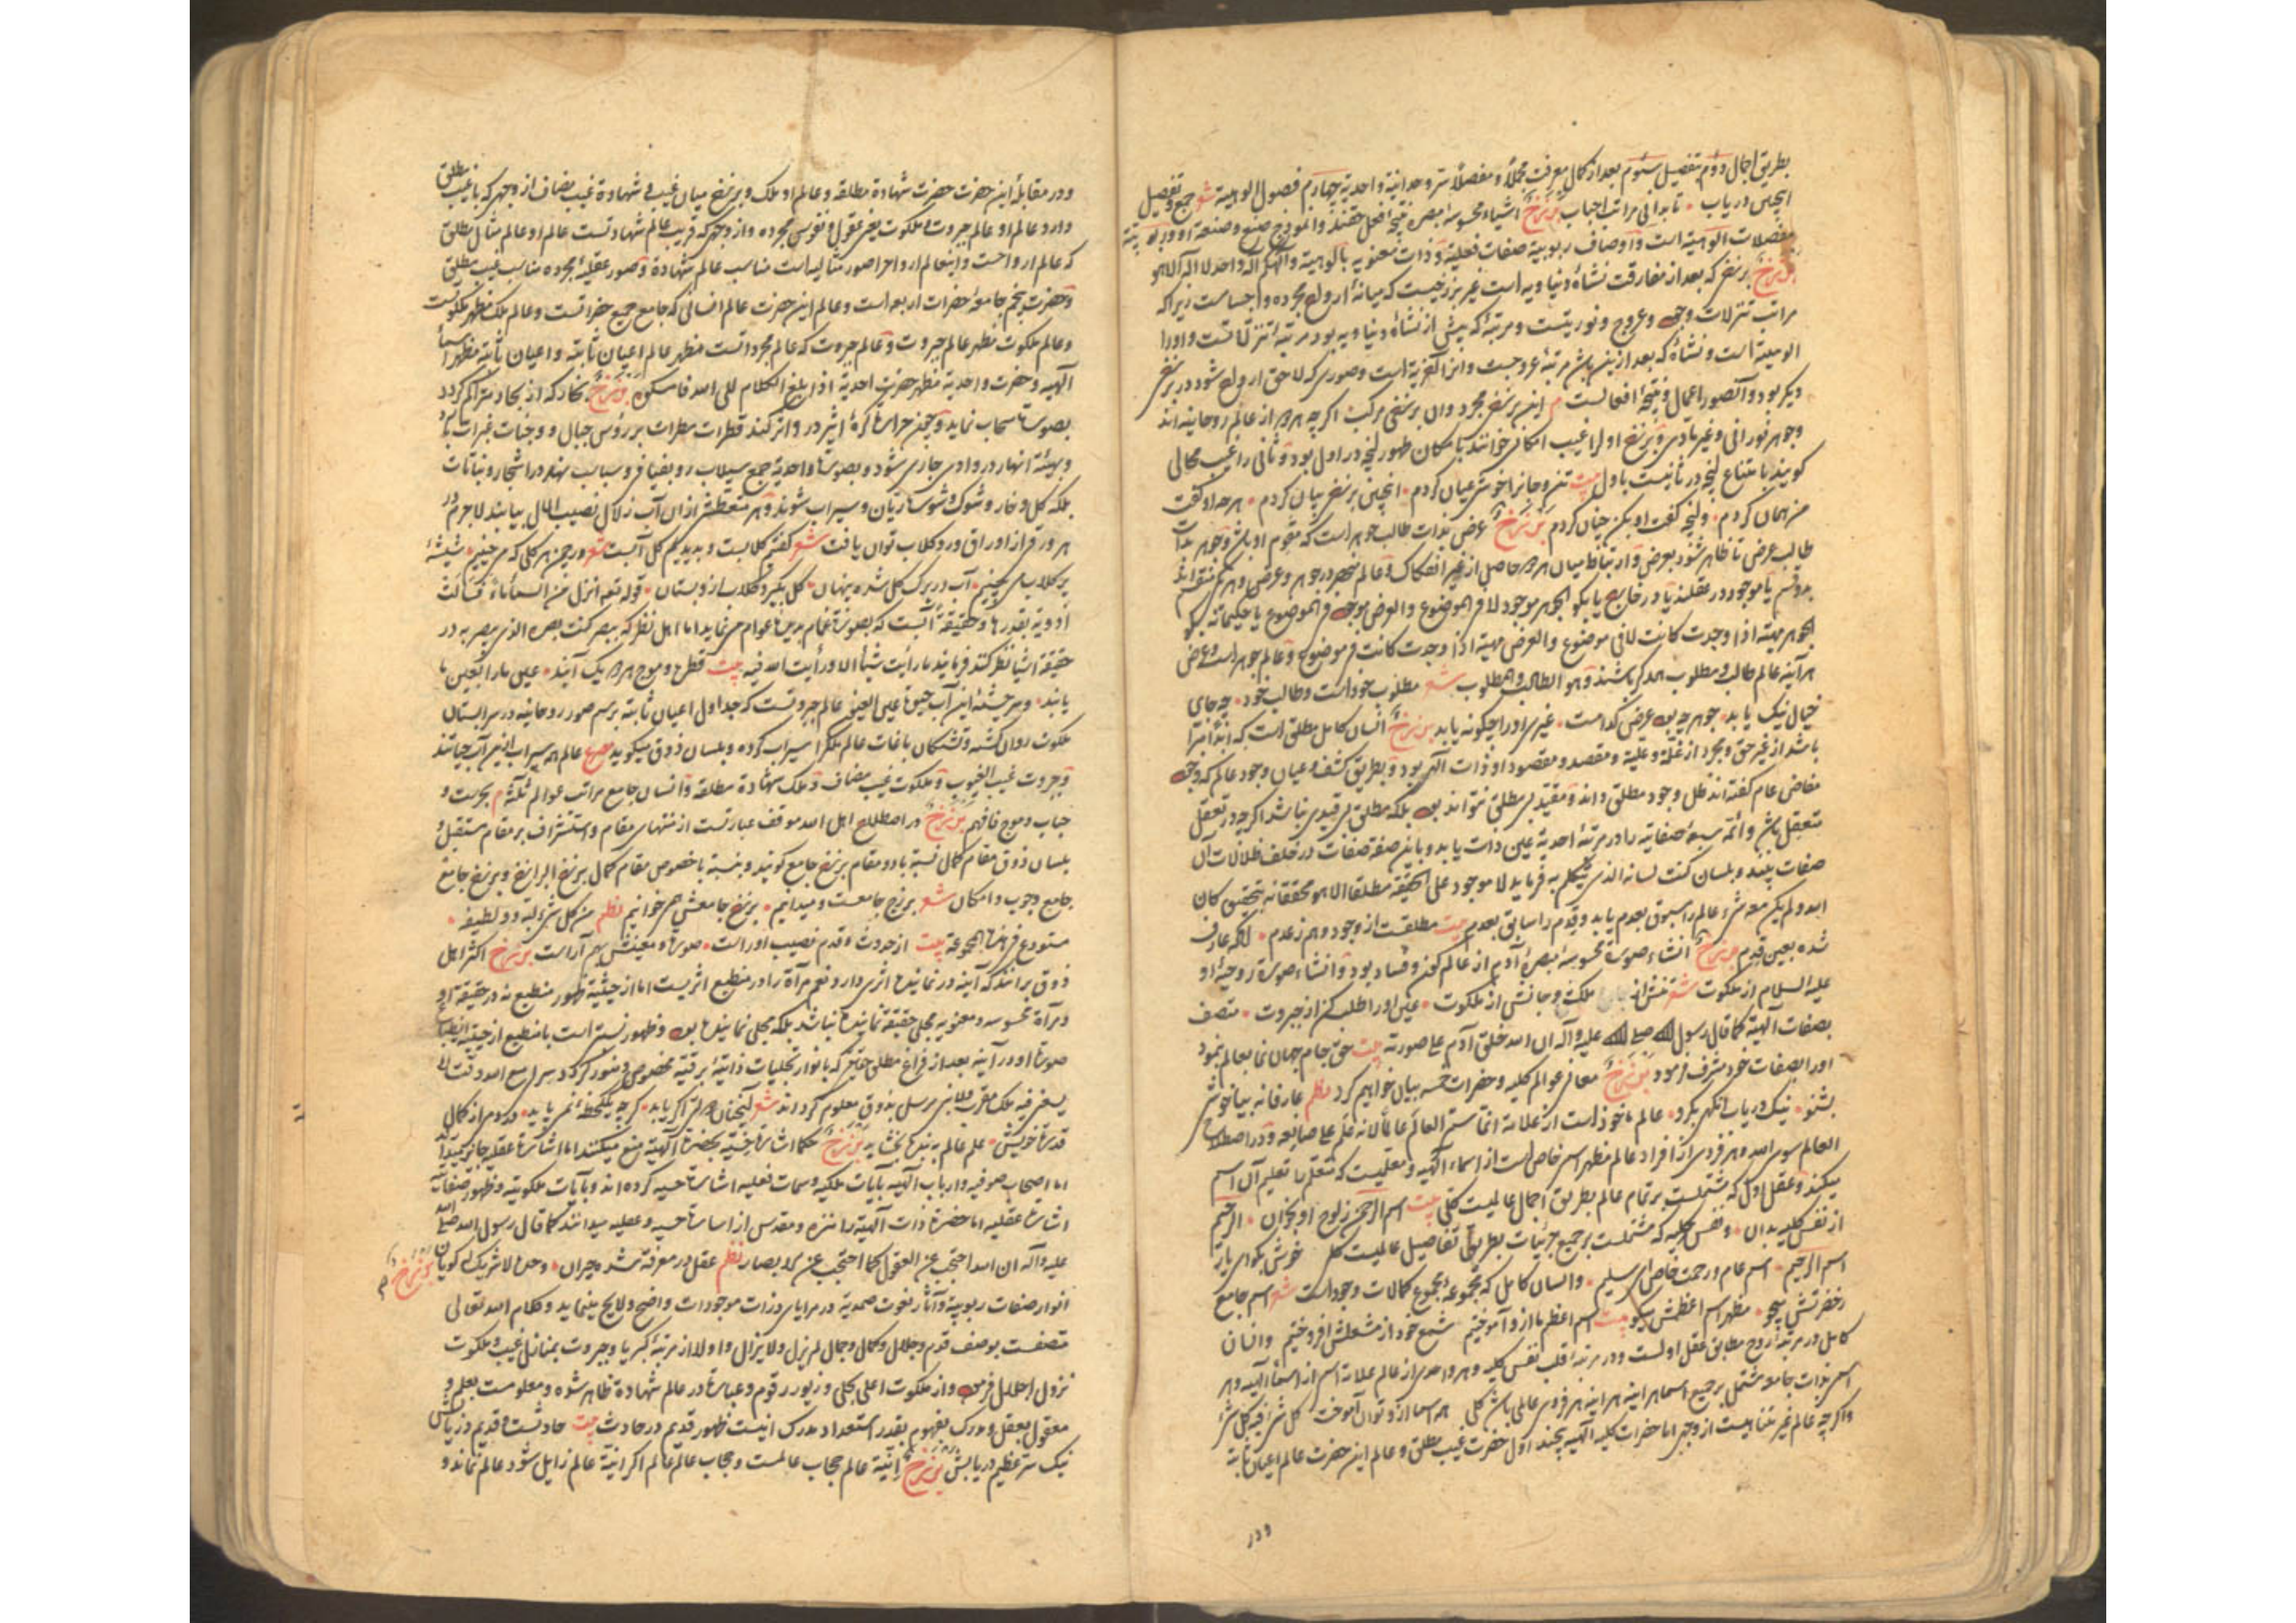 بطریق اجمال دوم تفصیل سئوم بعد از کمال معرفت مجملاً و مفصلاً سر وحدانیة واحدیة چهارم فصول الوهیة شعر جمع و تفصیل
اینچنین دریاب تا بدانی مراتب احباب برزخ اشیاء محسوسه مبصره نتیجه افعل حقند و انموذج صنع و صنعة او و ربوبیته
مفصلات الوهیة است و اوصاف ربوبیة صفات فعلیة و ذات معنویه بالوهیة و الهکم اله واحد لا اله الا هو
برزخ برزخی که بعد از مفارقت نشاه دنیاویه است غیر برزخیست که میانه ارواح مجرده و اجسامست زیرا که
مراتب تنزلات وجود و عروج و نوریتست و مرتبه که پیش از نشاه دنیاویه بود مرتبه تنزلاتست و او را
اولیتست و نشاه که بعد از این باشد مرتبه عروجست و از آخریة است و صوری که لاحق ارواح شود در برزخ
دیگر بود و آن صور اعمال و نتیجه افعالست این برزخ مجرد و ان برزخی مرکب اگرچه هردو از عالم روحانیه اند
وجوهر نورانی و غیر مادی و برزخ اول را غیب امکانی خوانند بامکان ظهور آنچه در اول بود و ثانی را غیب محالی
گویند بامتناع آنچه در ثانیست باول بیت تن و جانرا خوش عیان کردم اینچنین برزخی بیان کردم هرچه او گفت
من همان کردم وانچه گفت او بکن چنان کردم برزخ عرض بذات طالب جوهر است که مقوم او باشد و جوهر بذات
طالب عرض تا ظاهر شود بعرض و ارتباط میان هردو حاصل از غیر انفکاک و عالم منحصر در جوهر و عرض
هر آینه عالم طالب و مطلوب همدگر باشند و هو الطالب و المطلوب شعر مطلوب خود است و طالب خود
خیال نیک یابد جوهر چه بود عرض کدامست غیری او را چگونه یابد برزخ انسان کامل مطلق است که ابداً مبرا
باشد از غیر حق و مجرد از علة و علیة و مقصد و مقصود او ذات الهی بود و بطریق کشف و عیان وجود عالم که وجود
مفاض عام گفته اند ظل وجود مطلق داند و مقید بی مطلق نتواند بود بلکه مطلق بی قیدی نباشد اگرچه در تعقل
متعقل باشد و ائمه سبعه صفاتیه را در مرتبه احدیة عین ذات یابد و باین صفة صفات در خلف ظلالات آن
صفات بیند و بلسان کنت لسانه الذی یتکلم به فرماید لا موجود علی الحقیقة مطلقا الا هو محققانه بتحقیق کان
الله و لم یکن معه شیء عالم را مسبوق بعدم یابد و قدم را سابق بعدم بیت مطلقست از وجود و هم ز عدم
شده بعین قدم برزخ انشاء صورة محسوسه مبصره آدم از عالم کون و فساد بود و انشاء صورة روحیه او
علیه السلام از ملکوت شعر تنش از ملک و جانش از ملکوت عین او را طلب کن از جبروت متصف
بصفات الهیة کما قال رسول الله صلی الله علیه و آله ان الله خلق آدم علی صورته بیت حق جام جهان نما بعالم بنمود
او را بصفات خود مشرف فرمود برزخ معانی عوالم کلیه و حضرات خمسه بیان خواهیم کرد نظم عارفانه بیا و خوش
بشنو نیک دریاب و نکهی بگرد عالم ماخوذ است از علامة انما سمی العالم عالماً لانه علم علی صانعه و در اصطلاح
العالم سوی الله و هر فردی از افراد عالم مظهر اسم خاص است از اسماء الهیه و معلمیست که متعلم را تعلیم آن اسم
میکند و عقل اول که مشتملست بر تمام عالم بطریق اجمال عالمیست کلی بیت اسم الرحمن ز لوح او بخوان الرحیم
از نفس کلیه بدان و نفس کلیه که مشتملست بر جمیع جزئیات بطریق تفاصیل عالمیست کلی خوش بگو ای یار
اسم الرحیم اسم عام و رحمت خاص ای سلیم و انسان کامل که مجموعه مجموع کمالات وجود است شعر اسم جامع
ز حضرتش میجو مظهر اسم اعظمش میگو بیت اسم اعظم ما از او آموختیم شمع خود از مشعلش افروختیم و انسان
کامل در مرتبه روح مطابق عقل اولست و در مرتبه قلب نفس کلیه و هر واحدی از عالم علامة اسمی از اسماء الهیه و هر
اسم بذات جامع مشتمل بر جمیع اسما هر آینه هر فردی عالمی باشد کلی همه اسما از و توان آموخت کل شیء فیه کل شیء
و اگرچه عالم غیر متناهیست از وجهی اما حضرات کلیه الهیه پنجند اول حضرت غیب مطلق و عالم این حضرت عالم اعیان ثابته
و در
و در مقابله این حضرت حضرت شهادة مطلقه و عالم او ملک و برزخ میان غیب و شهادة غیب مضاف از وجهی که با غیب مطلق
دارد عالم او عالم جبروت و ملکوت یعنی عقول و نفوس مجرده و از وجهی که قریب عالم شهادتست عالم او عالم مثال مطلق
که عالم ارواحست و این عالم ارواح را صور مثالیه است مناسب عالم شهادة و صور عقلیه مجرده مناسب غیب مطلق
و حضرت پنجم جامعه حضرات اربعه است و عالم این حضرت عالم انسانی که جامع جمیع حضراتست و عالم ملک مظهر ملکوتست
و عالم ملکوت مظهر عالم جبروت و عالم جبروت که عالم مجرداتست مظهر عالم اعیان ثابته و اعیان ثابته مظهر اسماء
الهیه و حضرت واحدیة مظهر حضرت احدیة اذا بلغ الکلام الی الله فامسکوه برزخ بخار که از بحار متراکم گردد
بصورت سحاب نماید و چون حرارت کره اثیر در و اثر کند قطرات مطرات بر رؤس جبال و وجنات غبرات بارد
و بهیئة انهار در وادی جاری شود و بصورت واحدیة جمع سیلاب رو بفیافی و سباسب نهد در اشجار و نباتات
بلکه گل و خار و شوک و شوسات ریان و سیراب شوند و هر متعطشی از ان آب زلال نصیب الحال بیابند لاجرم در
هر ورقی از اوراق ورد گلاب توان یافت شعر گفتم گلابست و بدیدیم گل آبست شعر در چمن هر گلی که می چینم شیشه
پر گلاب می بینم آب در برگ گل شده پنهان گل بگیر و گلاب از و بستان قوله تعالی انزل من السماء ماء فسالت
اودیة بقدرها و حقیقة آبست که بصورت غمام بدیده عوام می نماید اما اهل نظر که بنظر کنت بصره الذی یبصر به در
حقیقة اشیا نظر کنند فرمایند ما رأیت شیأً الا و رأیت الله فیه بیت قطره و موج هردو یک آبند عین ما را بعین ما
یابند و سرچشمه این آب حیوة عین الیقین عالم جبروتست که جداول اعیان ثابته برسم صور روحانیه در سرابستان
ملکوت روان گشته و تشنگان باغات عالم ملک را سیراب کرده و بلسان ذوق میگوید مصرع عالم همه سیراب ازین آب حیاتند
و جبروت غیب الغیوب و ملکوت غیب مضاف و ملک شهادة مطلقه و انسان جامع مراتب عوالم ثلثة بحریست و
حباب و موج فافهم برزخ در اصطلاح اهل الله موقف عبارتست از منتهای مقام و استشراف بر مقام مستقبل و
بلسان ذوق مقام کمال نسبة با دو مقام برزخ جامع گویند و بنسبة باخصوص مقام کمال برزخ البرازخ و برزخ جامع
جامع وجوب و امکان شعر برزخ جامعست و میدانیم برزخ جامعش همی خوانیم نظم من کل شیء لبه و لطیفه
مستودع فی هذه المجموعة بیت از حدوث و قدم نصیب او راست صورت و معنیش بهم آراست برزخ اکثر اهل
ذوق برانند که آینه در نماینده اثری دارد و نعم مرآة را در منطبع اثریست اما از حیثیة ظهور منطبع نه در حقیقة او
و مرآة محسوسه و معنویه مجلی حقیقة نماینده نباشد بلکه مجلی نماینده بود و ظهور نسبتی است با منطبع از حیثیة انطباع
صورت او در آینه بعد از فراغ مطلق حقیقی که بانوار تجلیات ذاتیة برقیة مخصوص و منور گردد و سر لی مع الله وقت لا
یسعنی فیه ملک مقرب و لا نبی مرسل بذوق معلوم گرداند شعر آنچنان دولتی اگر یابد گرچه یک لحظه نمی پاید و دم از کمال
قدرت خویش علم عالم به بنده بخشاید برزخ حکما اشارت حسیة بحضرت الهیة منع میکنند اما اشارت عقلیه جایز میدارند
اما اصحاب صوفیه و ارباب الهیه بآیات ملکیه و سمات فعلیه اشارت حسیه کرده اند و بآیات ملکوتیه و ظهور صفاتیه
اشارت عقلیه اما حضرت ذات الهیة را منزه و مقدس از اشارات حسیه و عقلیه میدانند کما قال رسول الله صلی الله
علیه و آله ان الله احتجب عن العقول کما احتجب عن الابصار نظم عقل در معرفة شده حیران وحده لا شریک له گویان برزخ
انوار صفات ربوبیة و آثار نعوت صمدیة در مرایای ذرات موجودات واضح و لایح مینماید و کلام الله تعالی
متصفست بوصف قدم و جلال و کمال و جمال لم یزل و لا یزال و اولا از مرتبه کبریا و جبروت بمنازل غیب و ملکوت
نزول اجلال فرمود و از ملکوت اعلی بحلی و زیور رقوم و عبارت در عالم شهادة ظاهر شده و معلومست بعلم و
معقول بعقل و مدرک بفهوم بقدر استعداد مدرک اینست ظهور قدیم در حادث بیت حادثست و قدیم دریابش
نیک سر عظیم دریابش برزخ انیة عالم حجاب عالمست و حجاب عالم عالم اگر انیة عالم زایل شود عالم نماند و